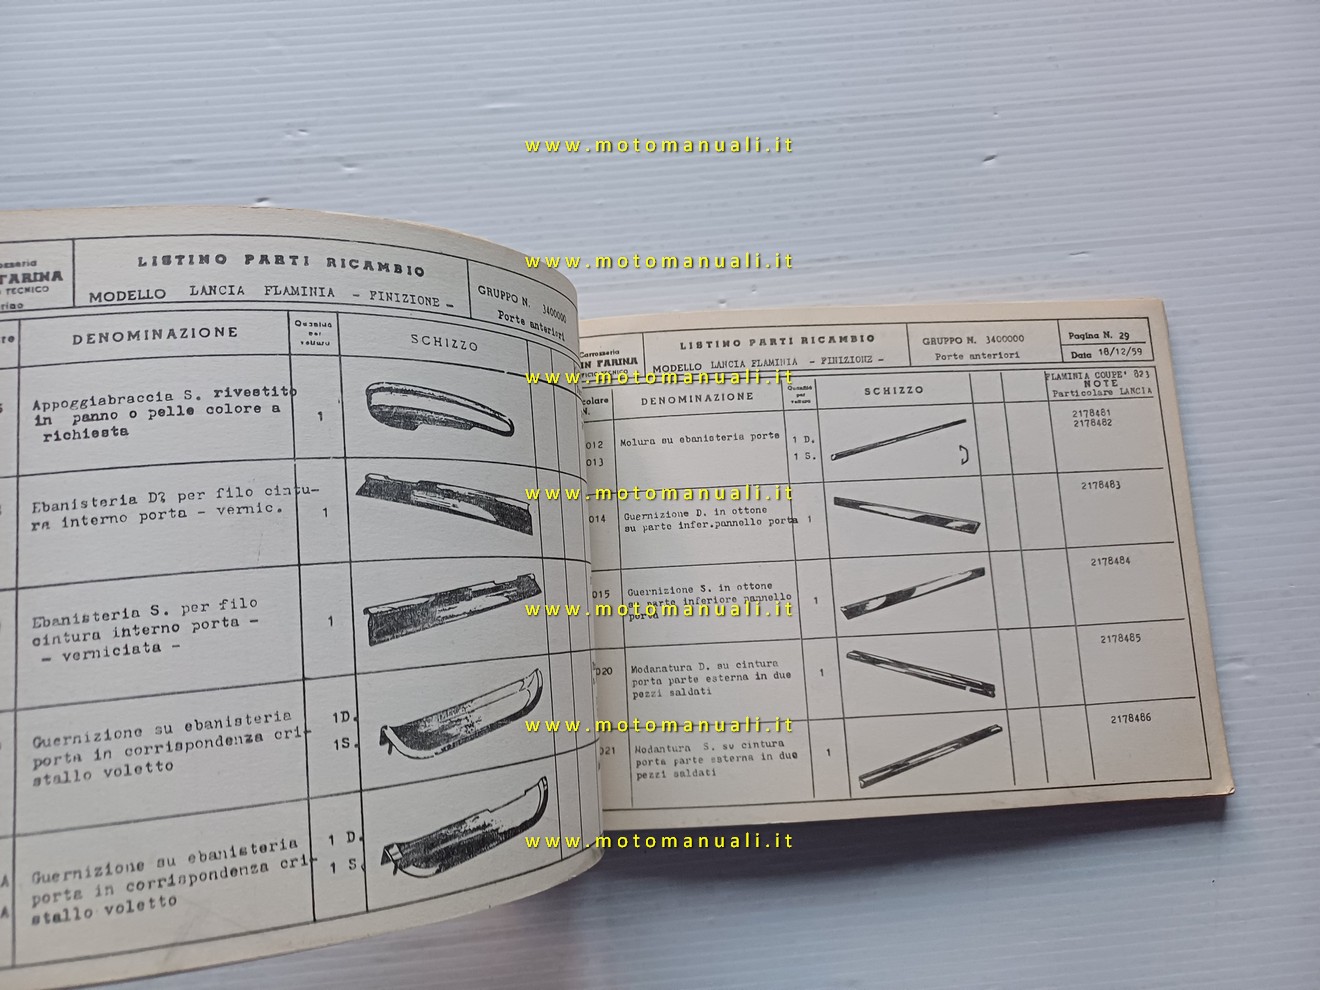 www.motomanuali.it
www.motomanuali.it
www.motomanuali.it
www.motomanuali.it
www.motomanuali.it
www.motomanuali.it
www.motomanuali.it
TARINA
TECNICO
LISTINO PARTI RICAMBIO
MODELLO LANCIA FLAMINIA - FINIZIONE -
GRUPPO N. 3400000
Porte anteriori
DENOMINAZIONE
Quantità
per
vettura
SCHIZZO
Appoggiabraccia S. rivestito
in panno o pelle colore a
richiesta
1
Ebanisteria D. per filo cintu-
ra interno porta - vernic.
1
Ebanisteria S. per filo
cintura interno porta -
- verniciata -
1
Guernizione su ebanisteria
porta in corrispondenza cri-
stallo voletto
1D.
1S.
A
A
Guernizione su ebanisteria
porta in corrispondenza cri-
stallo voletto
1 D.
1 S.
Carrozzeria
IN FARINA
TECNICO
LISTINO PARTI RICAMBIO
MODELLO LANCIA FLAMINIA - FINIZIONE -
GRUPPO N. 3400000
Porte anteriori
Pagina N. 29
Data 18/12/59
colare
N.
DENOMINAZIONE
Quantità
per
vettura
SCHIZZO
FLAMINIA COUPE' 823
NOTE
Particolare LANCIA
012
013
Molura su ebanisteria porte
1 D.
1 S.
2178481
2178482
014
Guernizione D. in ottone
su parte infer.pannello porta
1
2178483
015
Guernizione S. in ottone
su parte inferiore pannello
porta
1
2178484
020
Modanatura D. su cintura
porta parte esterna in due
pezzi saldati
1
2178485
021
Modantura S. su cintura
porta parte esterna in due
pezzi saldati
1
2178486